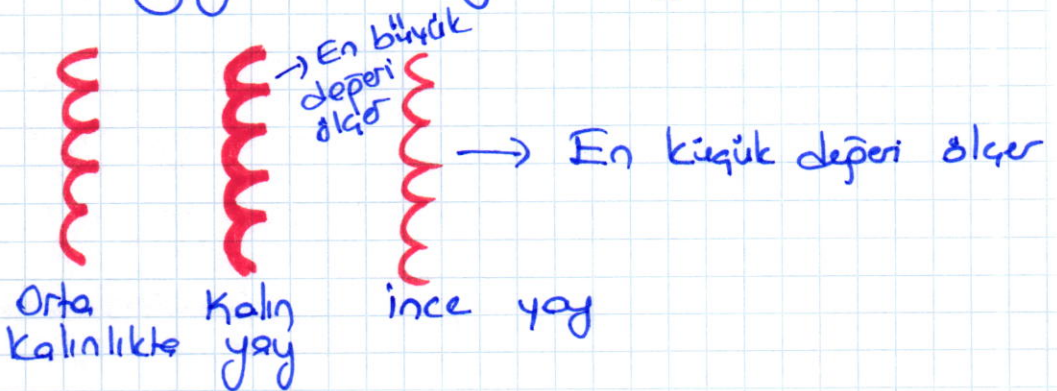 En büyük
değeri
ölçer
En küçük değeri ölçer
Orta
kalınlıkta
Kalın
yay
ince yay